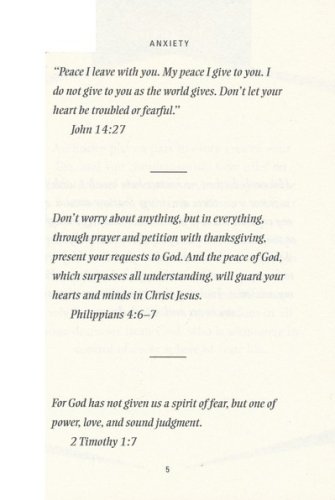 ANXIETY
“Peace I leave with you. My peace I give to you. I
do not give to you as the world gives. Don’t let your
heart be troubled or fearful.”
John 14:27
Don’t worry about anything, but in everything,
through prayer and petition with thanksgiving,
present your requests to God. And the peace of God,
which surpasses all understanding, will guard your
hearts and minds in Christ Jesus.
Philippians 4:6–7
For God has not given us a spirit of fear, but one of
power, love, and sound judgment.
2 Timothy 1:7
5